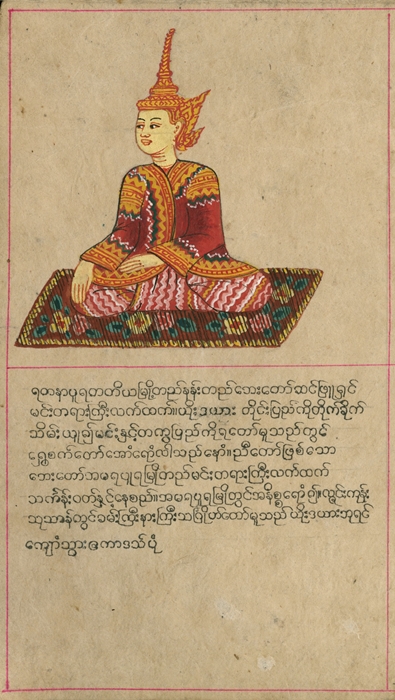 ရတနာပူရတတိယမြို့တည်နန်းတည်ဘေးတော်ဆင်ဖြူရှင်
မင်းတရားကြီးလက်ထက်။ယိုးဒယား တိုင်းပြည်ကိုတိုက်ခိုက်
သိမ်းယူ၍မင်းနှင့်တကွပြည်ကိုရတော်မူသည်တွင်
ရွှေစက်တော်အောက်ရောက်လာသည်နောက်။ညီတော်ဖြစ်သော
ဘေးတော်အမရပူရမြို့တည်မင်းတရားကြီးလက်ထက်
သင်္ကန်းဝတ်နှင့်နေစည်။အမရပူရမြို့တွင်အနိစ္စရောက်၍။လွင်းကုန်း
သုသာန်တွင်ခမ်းကြီးနားကြီးသင်္ဂြိုဟ်တော်မူသည် ယိုးဒယားဘုရင်
ကျောက်သွားဧကာဒသ်ပုံ